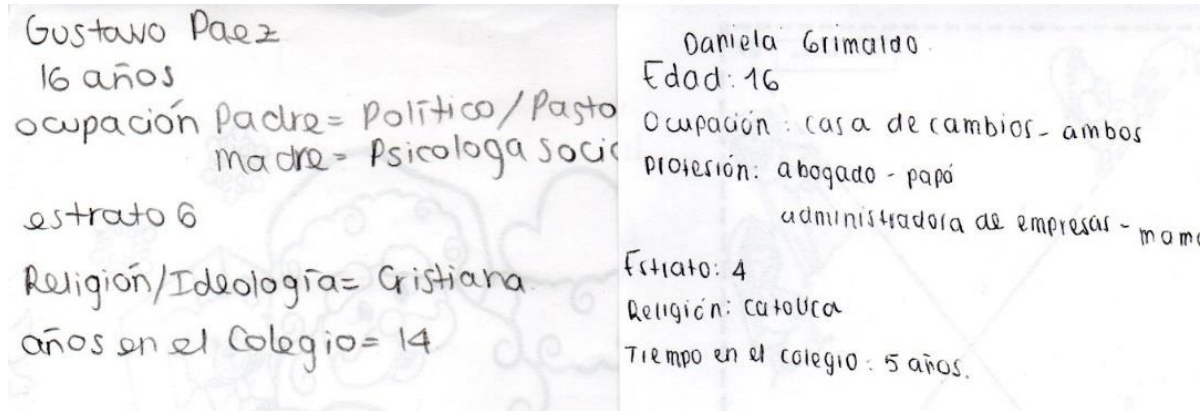 Gustavo Paez
16 años
ocupación Padre= Político/Pasto
madre= Psicologa socio
estrato 6
Religión/Ideología= Cristiana.
años en el Colegio= 14
Daniela Grimaldo.
Edad: 16
Ocupación: casa de cambios - ambos
Profesión: abogado - papá
administradora de empresas - mama
Estrato: 4
Religión: catolica
Tiempo en el colegio: 5 años.